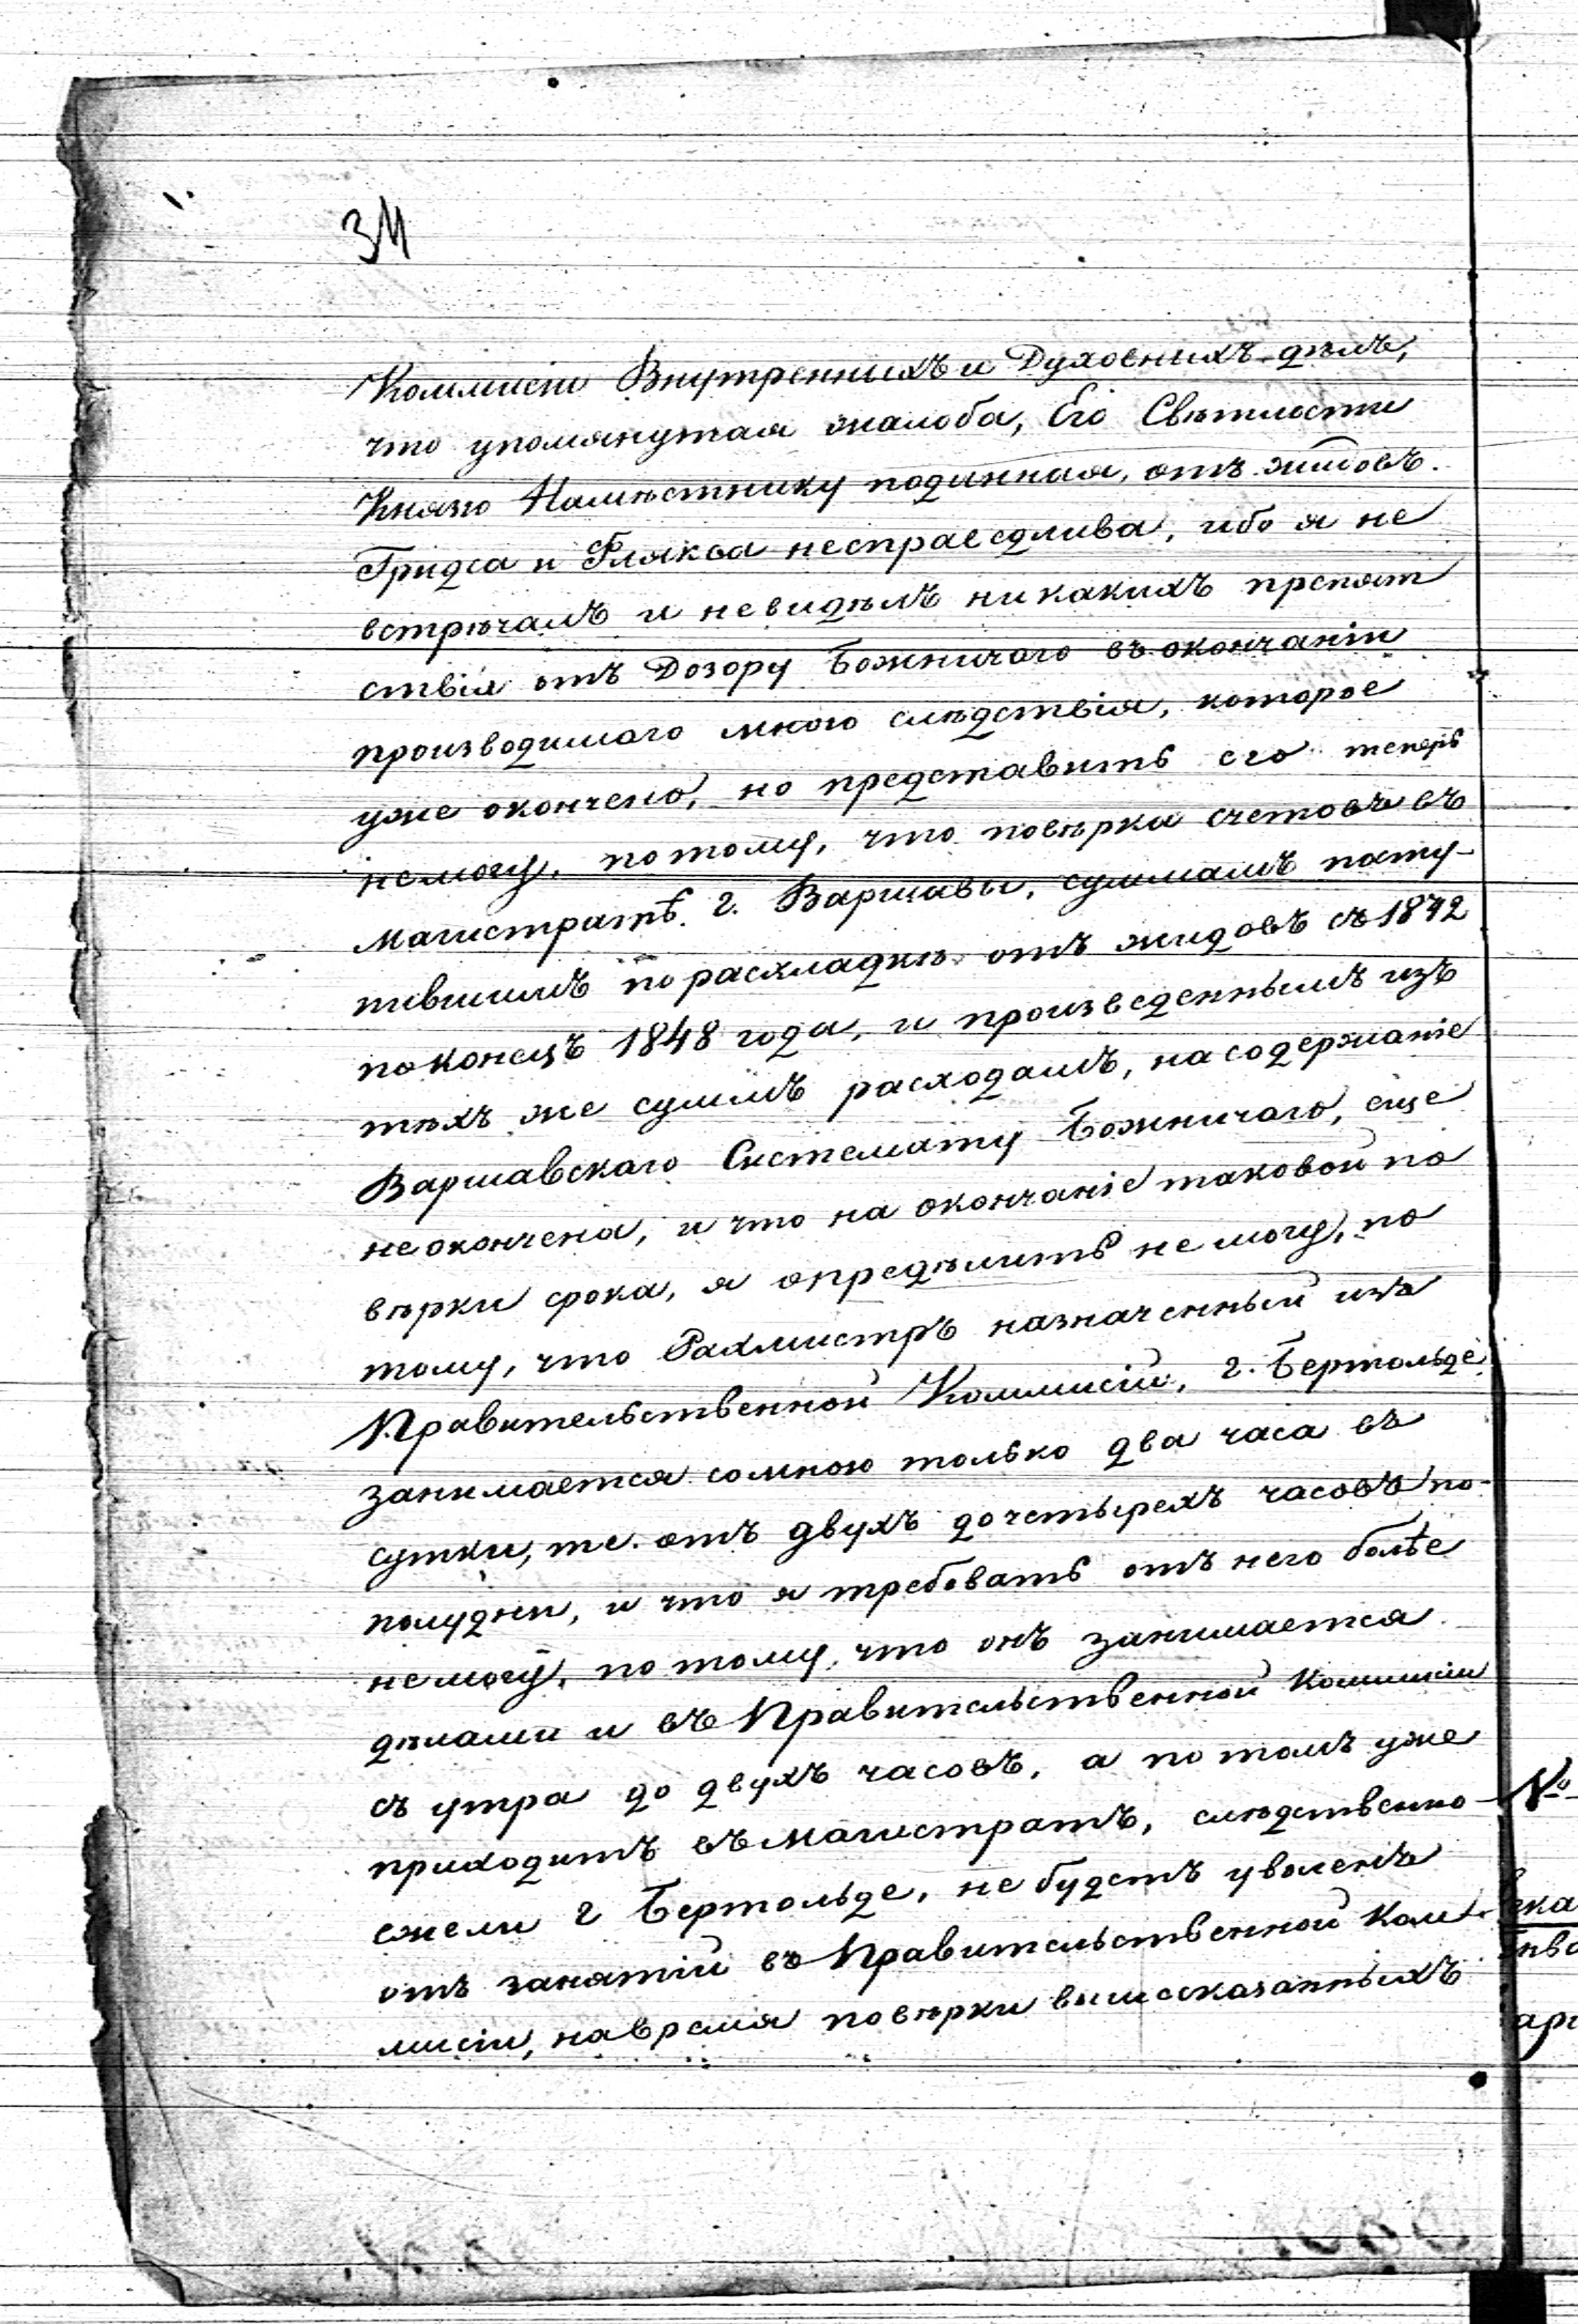 34
Коммисіи Внутреннихъ и Духовныхъ дѣлъ,
что упомянутая жалоба, Его Свѣтлости
Князю Намѣстнику поданная, отъ жидовъ
Гридса и Флякса несправедлива, ибо я не
встрѣчалъ и невидѣлъ никакихъ препят
ствія отъ Дозору Божничаго въ окончаніи
производимаго мною слѣдствія, которое
уже окончено, но представить его теперь
немогу, потому, что повѣрка счетовъ въ
Магистратѣ г. Варшавы, суммамъ посту-
пившимъ по раскладкѣ отъ жидовъ съ 1842
поконецъ 1848 года, и произведеннымъ изъ
тѣхъ же суммъ расходамъ, на содержаніе
Варшавскаго Системату Божничаго, еще
неокончена, и что на окончаніе таковой по
вѣрки срока, я опредѣлить не могу, по
тому, что Рахмистръ назначенный изъ
Правительственной Коммисіи, г. Бертольде
занимается сомною только два часа въ
сутки, те. отъ двухъ до четырехъ часовъ по-
полудни, и что я требовать отъ него болѣе
немогу, потому, что онъ занимается
дѣлами и въ Правительственной Коммисіи
съ утра до двухъ часовъ, а потомъ уже
приходитъ въ Магистратъ, слѣдственно
ежели г Бертольде, не будетъ уволенъ
отъ занятій въ Правительственной Ком
мисіи, навремя повѣрки вышесказанныхъ
№